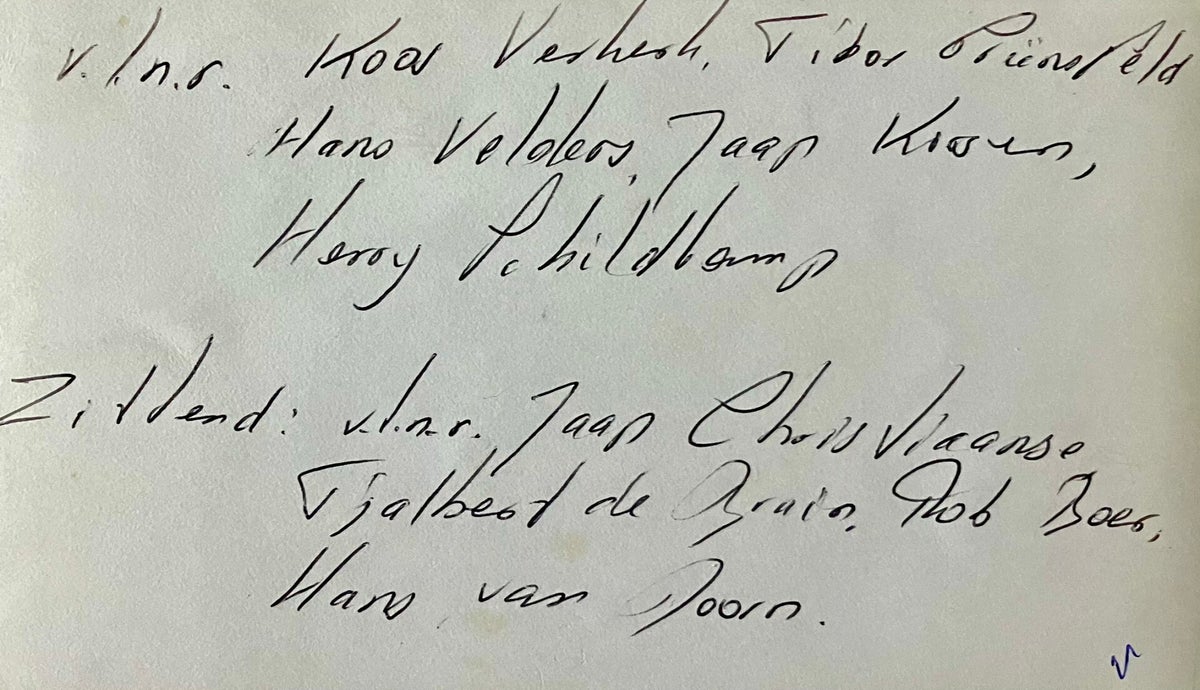 v.l.n.r. Koos Verkerk, Tibor
Hans Velders, Jaap
Henny Schildkamp
Zittend: v.l.n.r. Jaap Chris Vlaanse
Tjalbert de Bruin, Rob Boer,
Hans van Doorn.